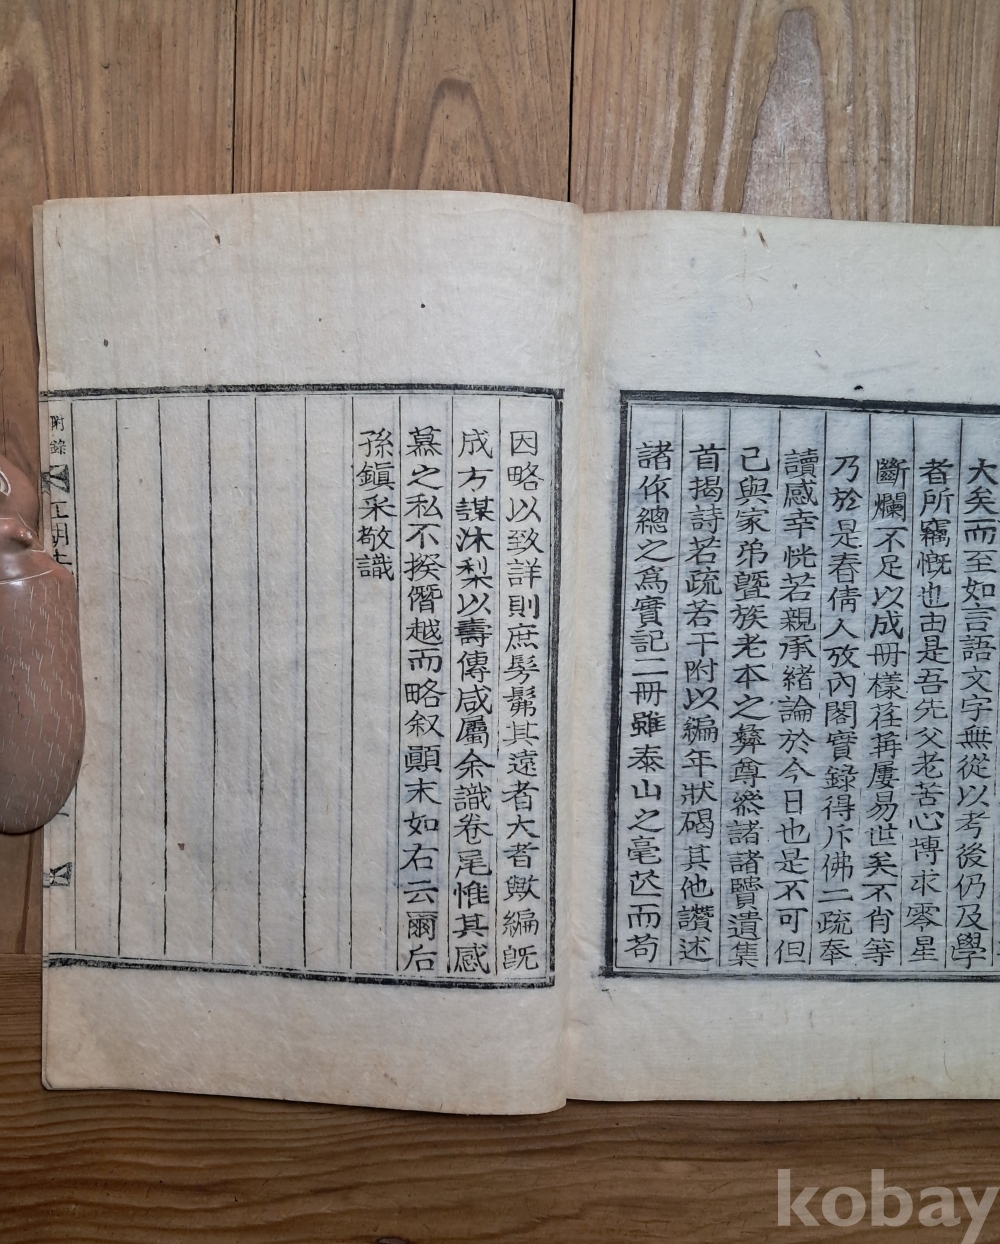 大矣而至如言語文字無從以考後仍及學
者所竊慨也由是吾先父老苦心博求零星
斷爛不足以成冊樣荏苒屢易世矣不肖等
乃於是春倩人攷內閣實錄得斥佛二疏奉
讀感幸恍若親承緖論於今日也是不可但
已與家弟曁族老本之彝尊叅諸諸賢遺集
首揭詩若疏若干附以編年狀碣其他讚述
諸作總之爲實記二冊雖泰山之毫芒而苟
因略以致詳則庶髣髴其遠者大者歟編旣
成方謀沐梨以壽傳咸屬余識卷尾惟其感
慕之私不揆僭越而略叙顚末如右云爾后
孫鎭采敬識
附錄
kobay